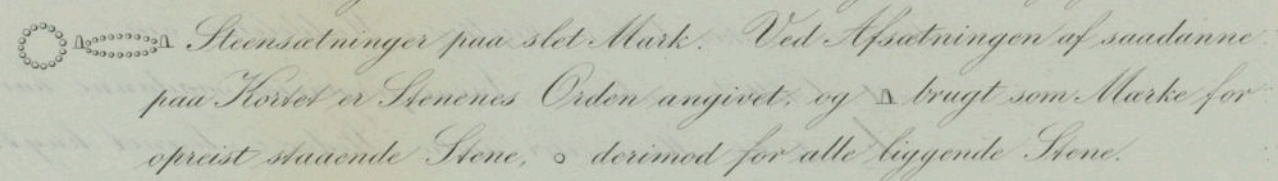 Steensætninger paa slet Mark. Ved Afsætningen af saadanne
paa Kortet er Stenenes Orden angivet, og brugt som Mærke for
opreist staaende Stene, derimod for alle liggende Stene.